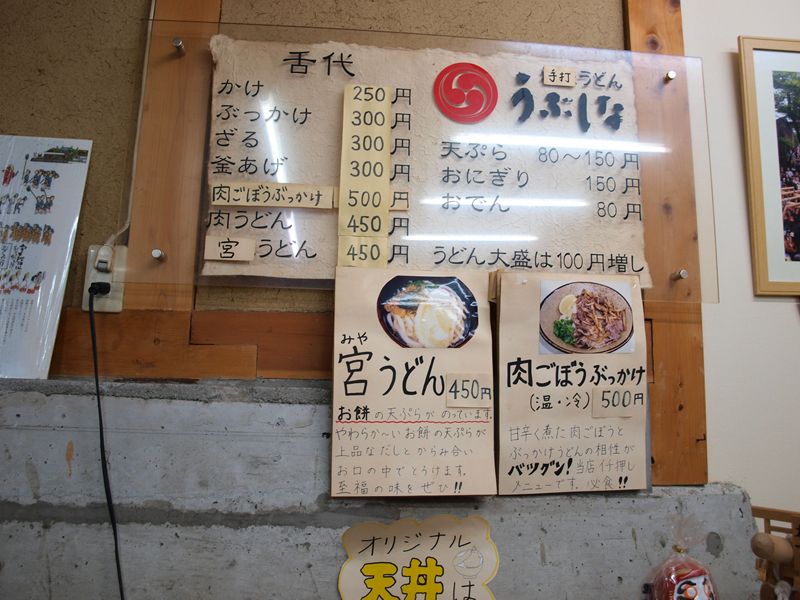 舌代
かけ 250円
ぶっかけ 300円
ざる 300円
釜あげ 300円
肉ごぼうぶっかけ 500円
肉うどん 450円
宮うどん 450円
手打うどん
うぶしな
天ぷら 80〜150円
おにぎり 150円
おでん 80円
うどん大盛は100円増し
みや
宮うどん 450円
お餅の天ぷらがのっています。
やわらか〜いお餅の天ぷらが
上品なだしとからみ合い
お口の中でとろけます。
至福の味をぜひ!!
肉ごぼうぶっかけ
(温・冷) 500円
甘辛く煮た肉ごぼうと
ぶっかけうどんの相性が
バツグン!当店イチ押し
メニューです。必食!!
オリジナル
天丼は